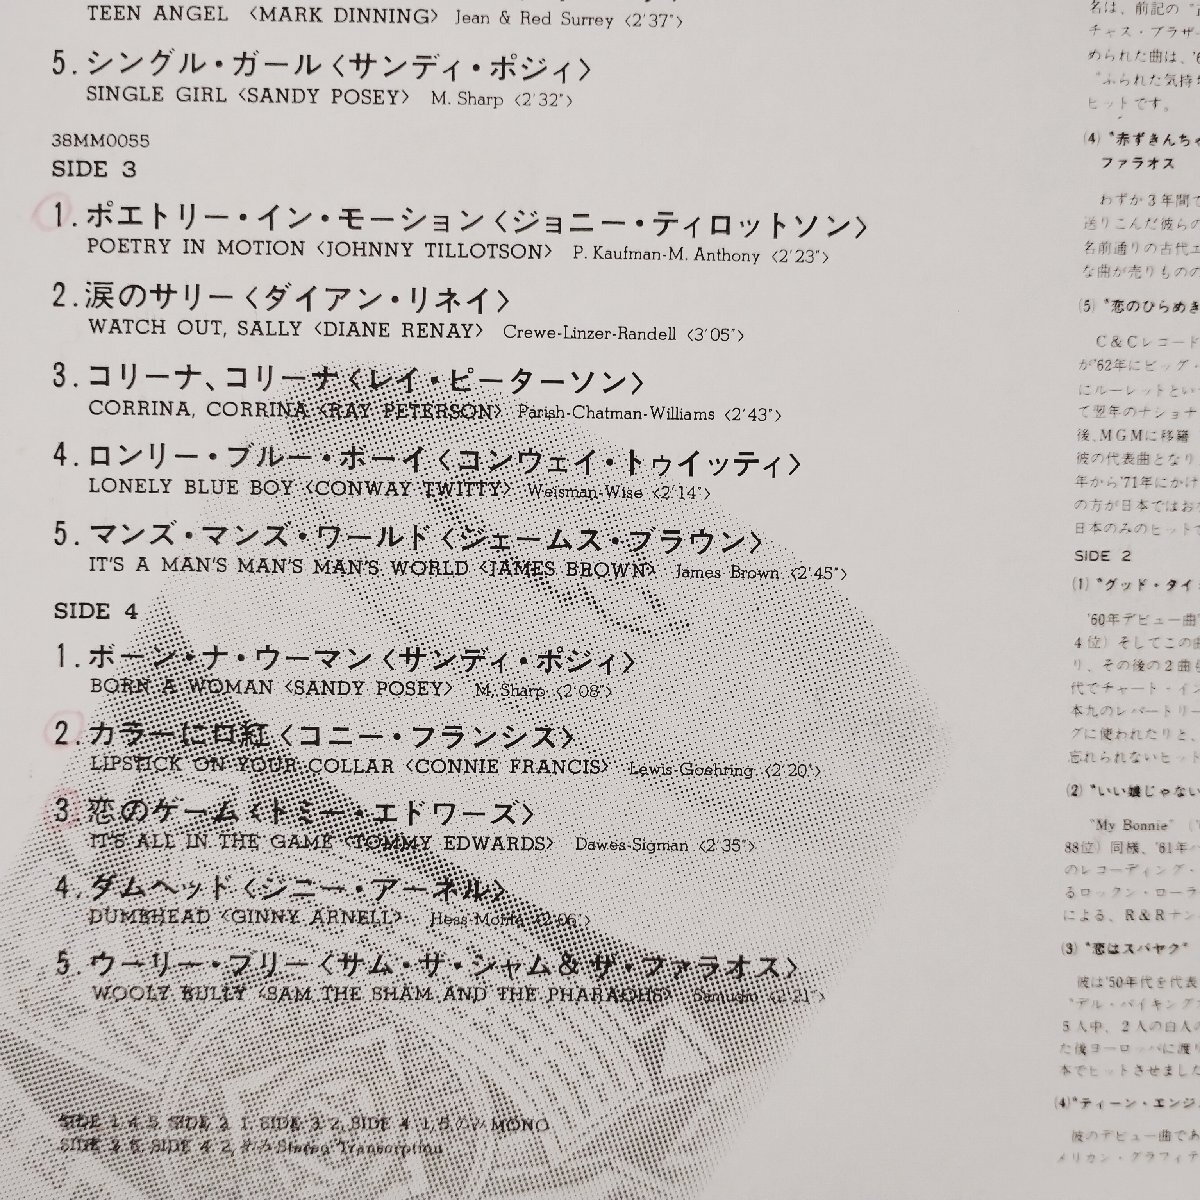 TEEN ANGEL 〈MARK DINNING〉 Jean & Red Surrey 〈2'37"〉
5. シングル・ガール〈サンディ・ポジィ〉
SINGLE GIRL 〈SANDY POSEY〉 M. Sharp 〈2'32"〉
38MM0055
SIDE 3
1. ポエトリー・イン・モーション〈ジョニー・ティロットソン〉
POETRY IN MOTION 〈JOHNNY TILLOTSON〉 P. Kaufman-M. Anthony 〈2'23"〉
2. 涙のサリー〈ダイアン・リネイ〉
WATCH OUT, SALLY 〈DIANE RENAY〉 Crewe-Linzer-Randell 〈3'05"〉
3. コリーナ、コリーナ〈レイ・ピーターソン〉
CORRINA, CORRINA 〈RAY PETERSON〉 Parish-Chatman-Williams 〈2'43"〉
4. ロンリー・ブルー・ボーイ〈コンウェイ・トゥイッティ〉
LONELY BLUE BOY 〈CONWAY TWITTY〉 Weisman-Wise 〈2'14"〉
5. マンズ・マンズ・ワールド〈ジェームス・ブラウン〉
IT'S A MAN'S MAN'S MAN'S WORLD 〈JAMES BROWN〉 James Brown 〈2'45"〉
SIDE 4
1. ボーン・ナ・ウーマン〈サンディ・ポジィ〉
BORN A WOMAN 〈SANDY POSEY〉 M. Sharp 〈2'08"〉
2. カラーに口紅〈コニー・フランシス〉
LIPSTICK ON YOUR COLLAR 〈CONNIE FRANCIS〉 Lewis-Goehring 〈2'20"〉
3. 恋のゲーム〈トミー・エドワーズ〉
IT'S ALL IN THE GAME 〈TOMMY EDWARDS〉 Dawes-Sigman 〈2'35"〉
4. ダムヘッド〈ジニー・アーネル〉
DUMBHEAD 〈GINNY ARNELL〉 〈2'06"〉
5. ウーリー・ブリー〈サム・ザ・シャム&ザ・ファラオス〉
WOOLY BULLY 〈SAM THE SHAM AND THE PHARAOHS〉 Samudio 〈2'21"〉
MONO
名は、前記の
チャス・ブラザー
められた曲は、
"ふられた気持
ヒットです。
(4) "赤ずきんちゃ
ファラオス
わずか3年間で
送りこんだ彼らの
名前通りの古代エ
な曲が売りものの
(5) "恋のひらめき
C&Cレコード
が'62年にビッグ・
にルーレットとい
て翌年のナショナ
後、MGMに移籍
彼の代表曲となり
年から'71年にかけ
の方が日本ではお
日本のみのヒット
SIDE 2
(1) "グッド・タイ
'60年デビュー曲
4位) そしてこの曲
り、その後の2曲も
代でチャート・イン
本九のレパートリー
グに使われたりと、
忘れられないヒット
(2) "いい娘じゃない
"My Bonnie"
88位) 同様、'61年
のレコーディング・
るロックン・ローラ
による、R&Rナン
(3) "恋はスバヤク"
彼は'50年代を代表
"デル・バイキング
5人中、2人の白人の
た後ヨーロッパに渡り
本でヒットさせました
(4) "ティーン・エンジ
彼のデビュー曲であ
メリカン・グラフィテ